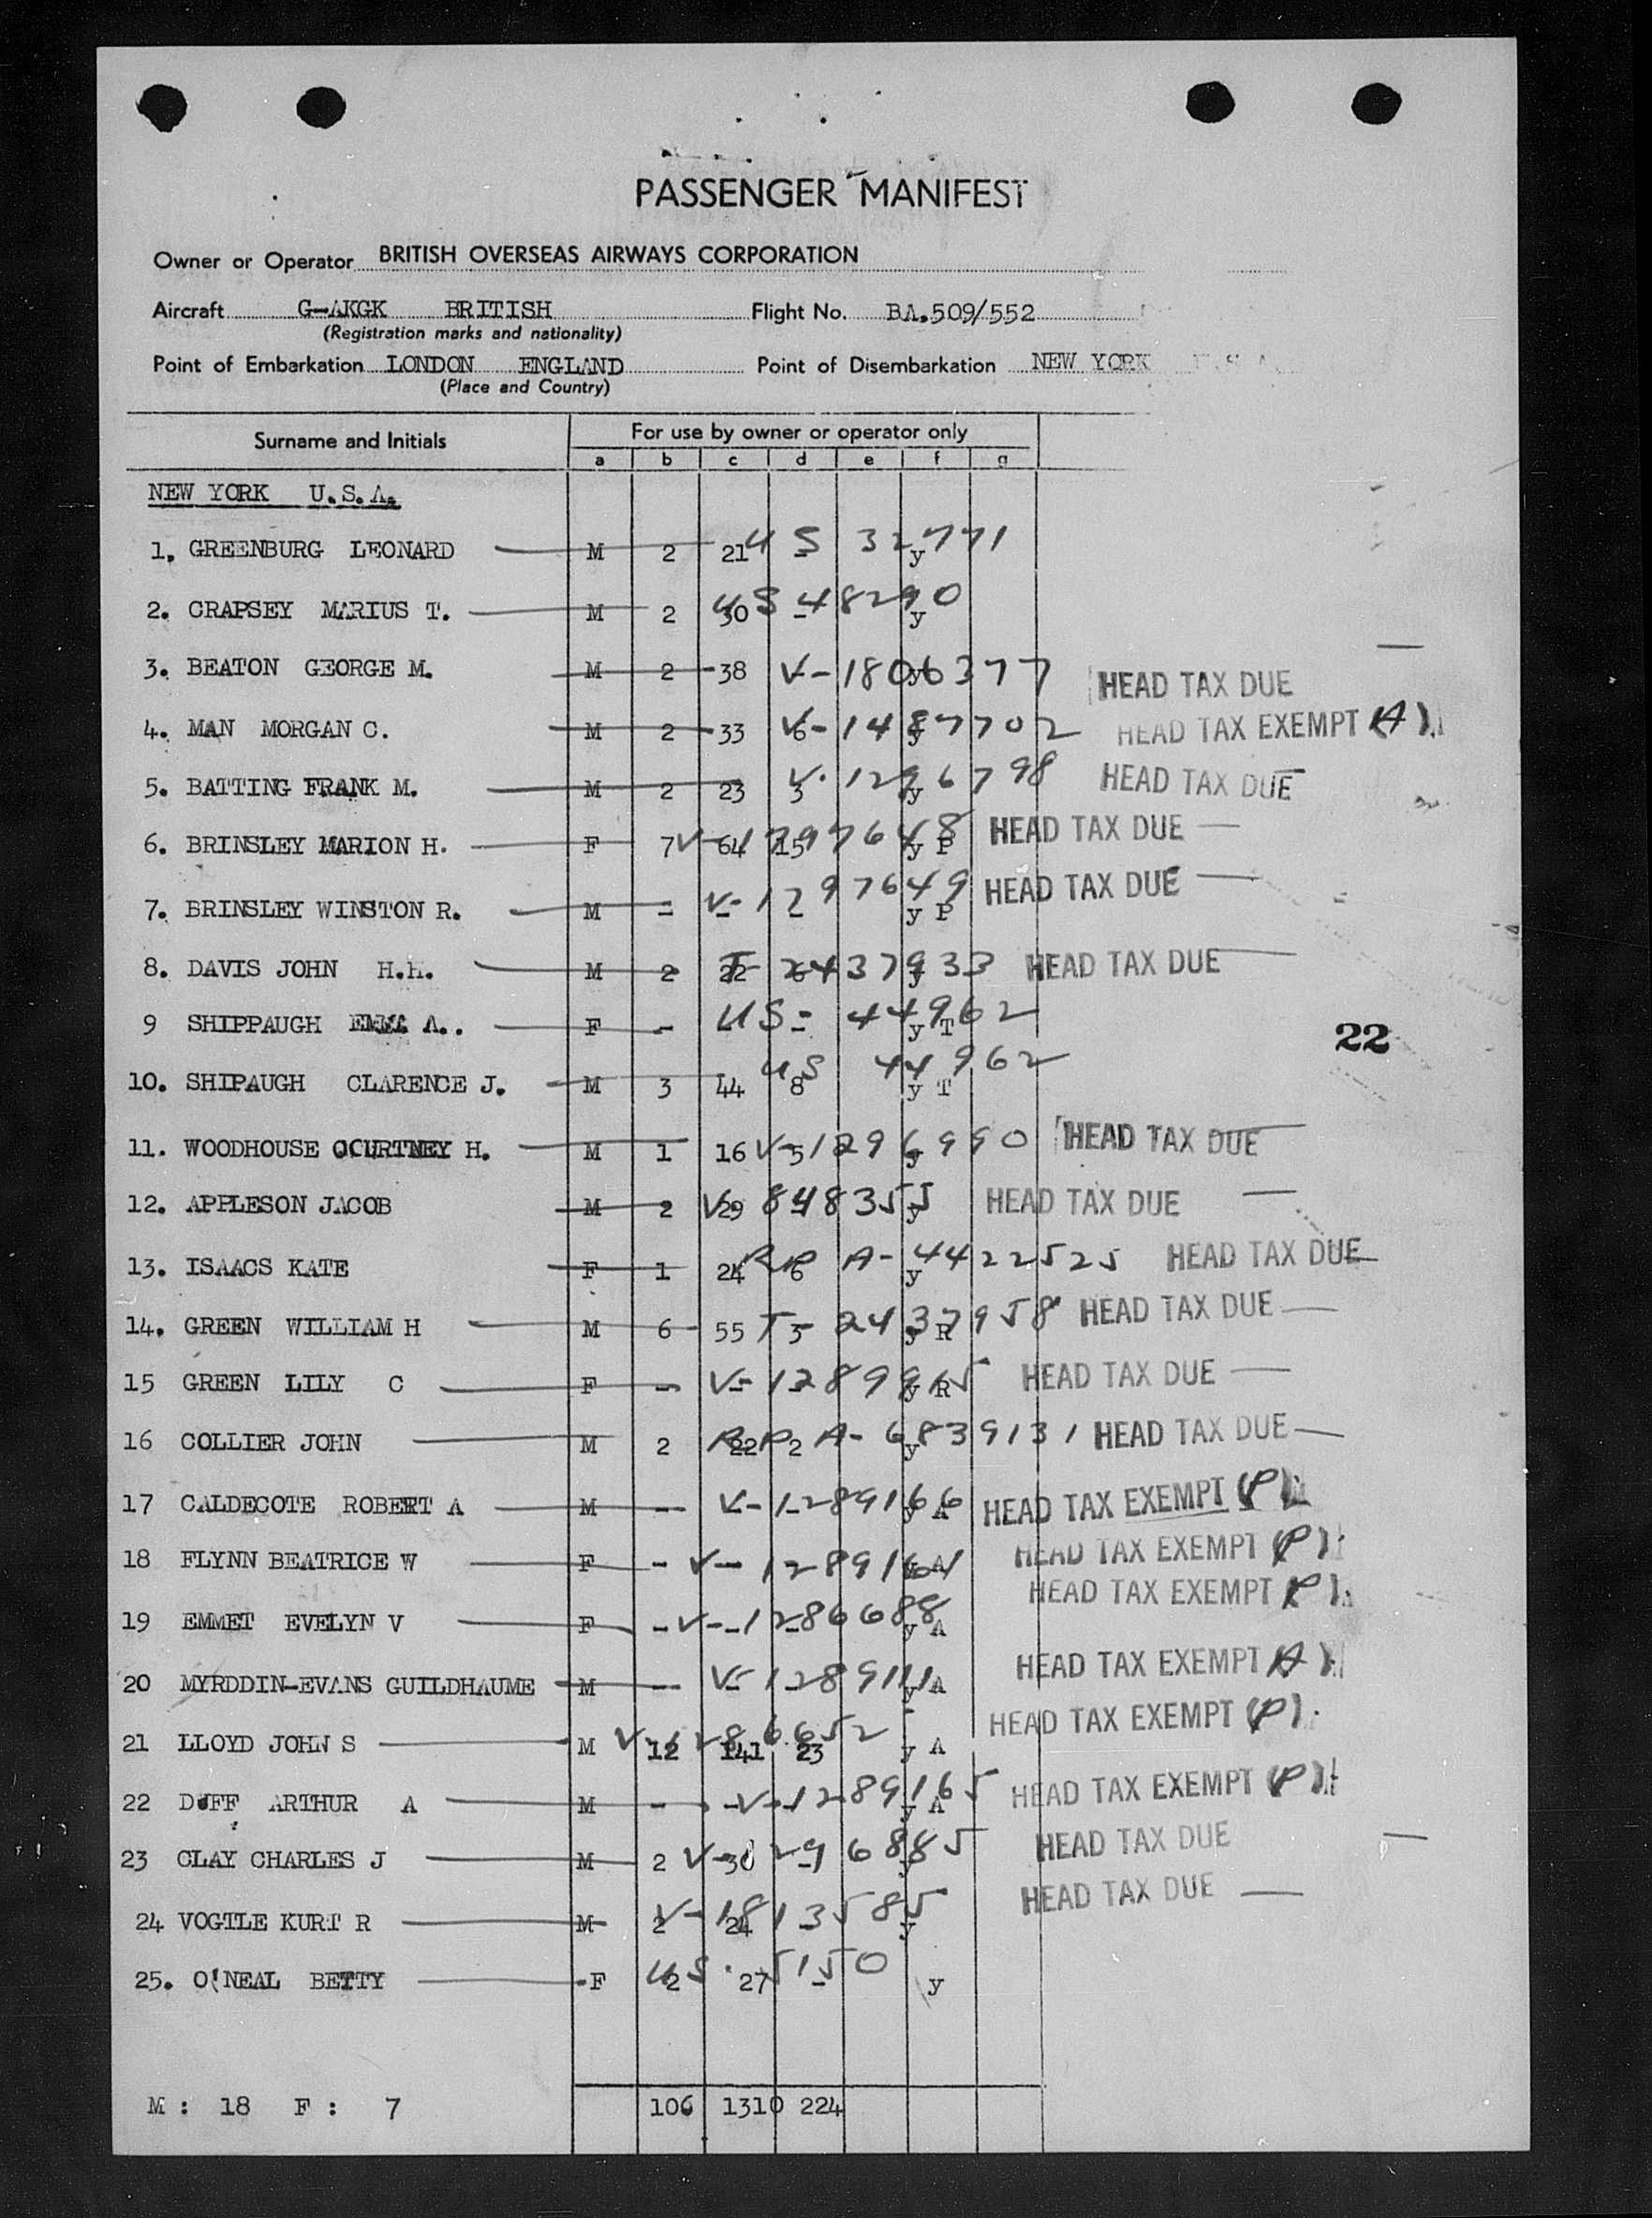 PASSENGER MANIFEST
Owner or Operator BRITISH OVERSEAS AIRWAYS CORPORATION
Aircraft G-AKGK BRITISH Flight No. BA.509/552
(Registration marks and nationality)
Point of Embarkation LONDON ENGLAND Point of Disembarkation NEW YORK U.S.A.
(Place and Country)
Surname and Initials For use by owner or operator only
a b c d e f g
NEW YORK U.S.A.
1. GREENBURG LEONARD M 2 21 - y US 32771
2. CRAPSEY MARIUS T. M 2 30 - y US 48290
3. BEATON GEORGE M. M 2 38 y V-1806377 HEAD TAX DUE
4. MAN MORGAN C. M 2 33 6 y V-1487702 HEAD TAX EXEMPT (A)
5. BATTING FRANK M. M 2 23 3 y V-1296798 HEAD TAX DUE
6. BRINSLEY MARION H. F 7 64 15 y P V-1297648 HEAD TAX DUE
7. BRINSLEY WINSTON R. M - - - y P V-1297649 HEAD TAX DUE
8. DAVIS JOHN H.H. M 2 22 6 y T-2437933 HEAD TAX DUE
9 SHIPPAUGH EMMA A.. F - - - y T US- 44962
22
10. SHIPAUGH CLARENCE J. M 3 44 8 y T US 44962
11. WOODHOUSE COURTNEY H. M 1 16 5 y V-1296990 HEAD TAX DUE
12. APPLESON JACOB M 2 29 - y V-848355 HEAD TAX DUE
13. ISAACS KATE F 1 24 6 y RP A-4422525 HEAD TAX DUE
14. GREEN WILLIAM H M 6 55 3 y R T-2437958 HEAD TAX DUE
15 GREEN LILY C F - - - y R V-1289965 HEAD TAX DUE
16 COLLIER JOHN M 2 22 2 y RP A-6839131 HEAD TAX DUE
17 CALDECOTE ROBERT A M - - - y A V-1289166 HEAD TAX EXEMPT (P)
18 FLYNN BEATRICE W F - - - y A V-1289161 HEAD TAX EXEMPT (P)
19 EMMET EVELYN V F - - - y A V-1286688 HEAD TAX EXEMPT (P)
20 MYRDDIN-EVANS GUILDHAUME M - - - y A V-1289111 HEAD TAX EXEMPT (A)
21 LLOYD JOHN S M 12 141 23 y A V-1286652 HEAD TAX EXEMPT (P)
22 DUFF ARTHUR A M - - - y A V-1289165 HEAD TAX EXEMPT (P)
23 CLAY CHARLES J M 2 30 - y V-1296885 HEAD TAX DUE
24 VOGTLE KURT R M 2 24 - y V-1813585 HEAD TAX DUE
25. O'NEAL BETTY F 2 27 - y US. 5150
M : 18 F : 7 106 1310 224